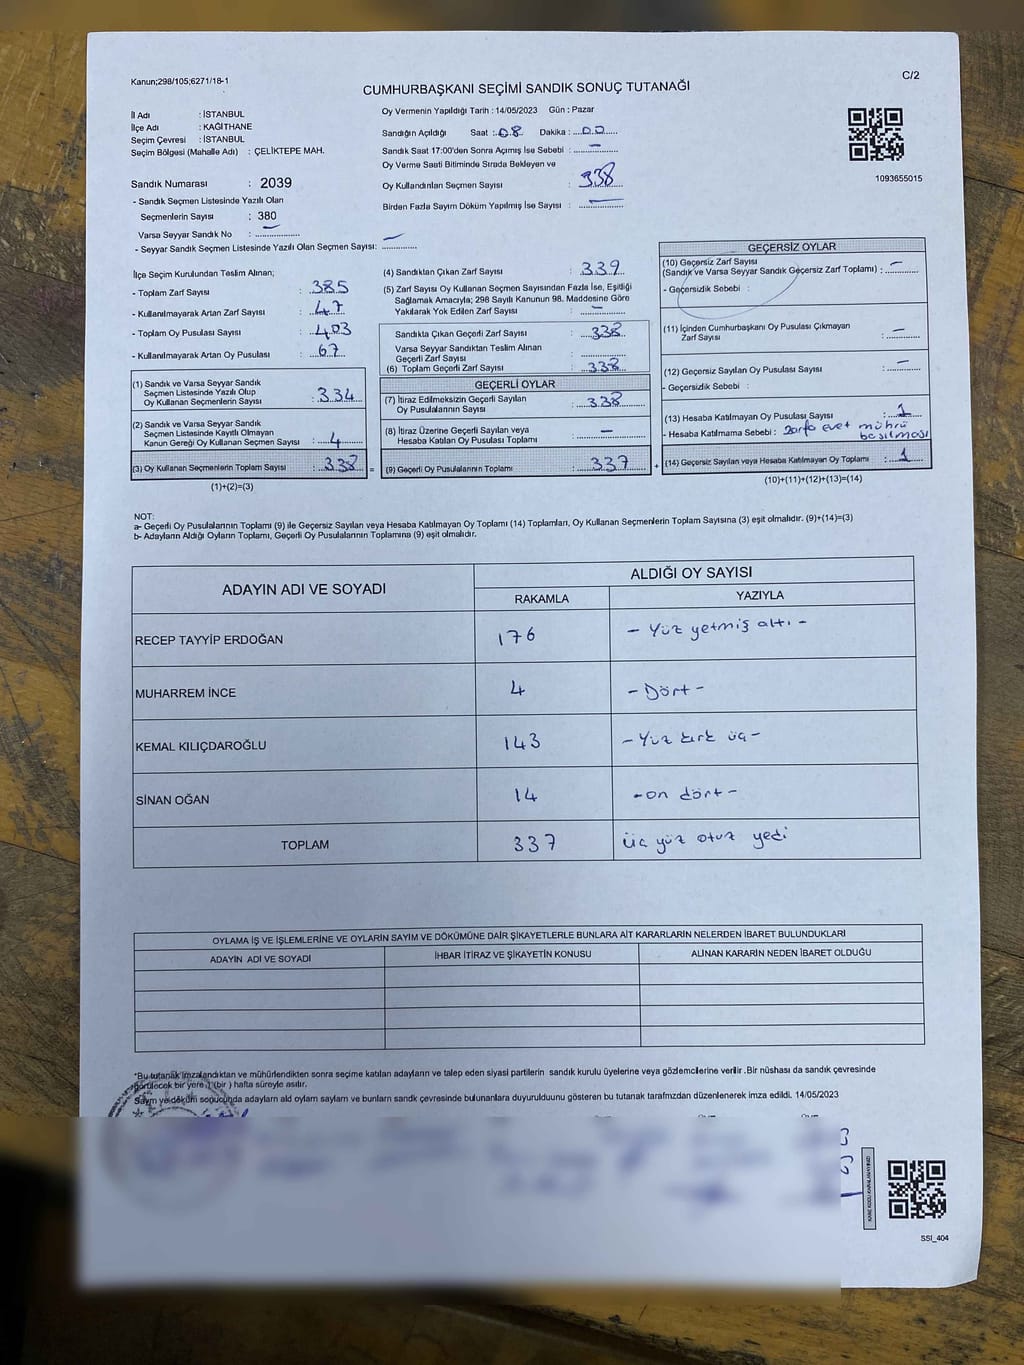 Kanun;298/105;6271/18-1
C/2
CUMHURBAŞKANI SEÇİMİ SANDIK SONUÇ TUTANAĞI
İl Adı : İSTANBUL
İlçe Adı : KAĞITHANE
Seçim Çevresi : İSTANBUL
Seçim Bölgesi (Mahalle Adı) : ÇELİKTEPE MAH.
Sandık Numarası : 2039
- Sandık Seçmen Listesinde Yazılı Olan
Seçmenlerin Sayısı : 380
Varsa Seyyar Sandık No : –
- Seyyar Sandık Seçmen Listesinde Yazılı Olan Seçmen Sayısı: –
Oy Vermenin Yapıldığı Tarih : 14/05/2023 Gün : Pazar
Sandığın Açıldığı Saat : 08 Dakika : 00
Sandık Saat 17:00'den Sonra Açımış İse Sebebi : –
Oy Verme Saati Bitiminde Sırada Bekleyen ve
Oy Kullandırılan Seçmen Sayısı : 338
Birden Fazla Sayım Döküm Yapılmış İse Sayısı : –
1093655015
İlçe Seçim Kurulundan Teslim Alınan;
- Toplam Zarf Sayısı : 385
- Kullanılmayarak Artan Zarf Sayısı : 47
- Toplam Oy Pusulası Sayısı : 403
- Kullanılmayarak Artan Oy Pusulası : 67
(1) Sandık ve Varsa Seyyar Sandık
Seçmen Listesinde Yazılı Olup
Oy Kullanan Seçmenlerin Sayısı : 334
(2) Sandık ve Varsa Seyyar Sandık
Seçmen Listesinde Kayıtlı Olmayan
Kanun Gereği Oy Kullanan Seçmen Sayısı : 4
(3) Oy Kullanan Seçmenlerin Toplam Sayısı : 338 =
(1)+(2)=(3)
(4) Sandıktan Çıkan Zarf Sayısı : 339
(5) Zarf Sayısı Oy Kullanan Seçmen Sayısından Fazla İse, Eşitliği
Sağlamak Amacıyla; 298 Sayılı Kanunun 98. Maddesine Göre
Yakılarak Yok Edilen Zarf Sayısı : –
Sandıkta Çıkan Geçerli Zarf Sayısı : 338
Varsa Seyyar Sandıktan Teslim Alınan
Geçerli Zarf Sayısı :
(6) Toplam Geçerli Zarf Sayısı : 338
GEÇERLİ OYLAR
(7) İtiraz Edilmeksizin Geçerli Sayılan
Oy Pusulalarının Sayısı : 338
(8) İtiraz Üzerine Geçerli Sayılan veya
Hesaba Katılan Oy Pusulası Toplamı : –
(9) Geçerli Oy Pusulalarının Toplamı : 337 +
GEÇERSİZ OYLAR
(10) Geçersiz Zarf Sayısı
(Sandık ve Varsa Seyyar Sandık Geçersiz Zarf Toplamı) : –
- Geçersizlik Sebebi :
(11) İçinden Cumhurbaşkanı Oy Pusulası Çıkmayan
Zarf Sayısı : –
(12) Geçersiz Sayılan Oy Pusulası Sayısı : –
- Geçersizlik Sebebi :
(13) Hesaba Katılmayan Oy Pusulası Sayısı : 1
- Hesaba Katılmama Sebebi : zarfa evet mührü
basılması
(14) Geçersiz Sayılan veya Hesaba Katılmayan Oy Toplamı : 1
(10)+(11)+(12)+(13)=(14)
NOT:
a- Geçerli Oy Pusulalarının Toplamı (9) ile Geçersiz Sayılan veya Hesaba Katılmayan Oy Toplamı (14) Toplamları, Oy Kullanan Seçmenlerin Toplam Sayısına (3) eşit olmalıdır. (9)+(14)=(3)
b- Adayların Aldığı Oyların Toplamı, Geçerli Oy Pusulalarının Toplamına (9) eşit olmalıdır.
ADAYIN ADI VE SOYADI
ALDIĞI OY SAYISI
RAKAMLA YAZIYLA
RECEP TAYYİP ERDOĞAN 176 - Yüz yetmiş altı -
MUHARREM İNCE 4 - Dört -
KEMAL KILIÇDAROĞLU 143 - Yüz kırk üç -
SİNAN OĞAN 14 - on dört -
TOPLAM 337 üç yüz otuz yedi
OYLAMA İŞ VE İŞLEMLERİNE VE OYLARIN SAYIM VE DÖKÜMÜNE DAİR ŞİKAYETLERLE BUNLARA AİT KARARLARIN NELERDEN İBARET BULUNDUKLARI
ADAYIN ADI VE SOYADI İHBAR İTİRAZ VE ŞİKAYETİN KONUSU ALINAN KARARIN NEDEN İBARET OLDUĞU
*Bu tutanak imzalandıktan ve mühürlendikten sonra seçime katılan adayların ve talep eden siyasi partilerin sandık kurulu üyelerine veya gözlemcilerine verilir .Bir nüshası da sandık çevresinde
görülecek bir yere 1 (bir ) hafta süreyle asılır.
Sayım ve döküm sonucunda adayların ald oyların sayları ve bunların sandk çevresinde bulunanlara duyurulduunu gösteren bu tutanak tarafmzdan düzenlenerek imza edildi. 14/05/2023
SSI_404